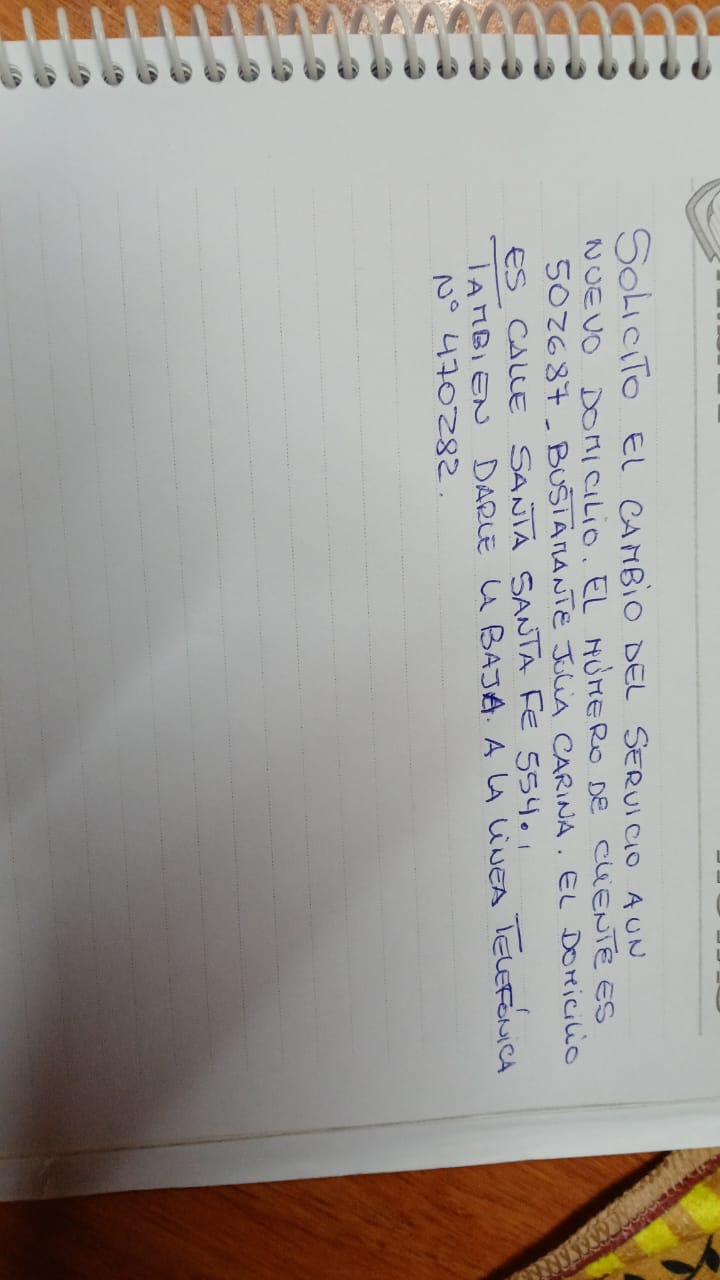 SOLICITO EL CAMBIO DEL SERVICIO A UN
NUEVO DOMICILIO. EL NÚMERO DE CLIENTE ES
502687 - BUSTAMANTE JULIA CARINA. EL DOMICILIO
ES CALLE SANTA SANTA FE 554.,
TAMBIEN DARLE LA BAJA. A LA LINEA TELEFÓNICA
N° 470282.